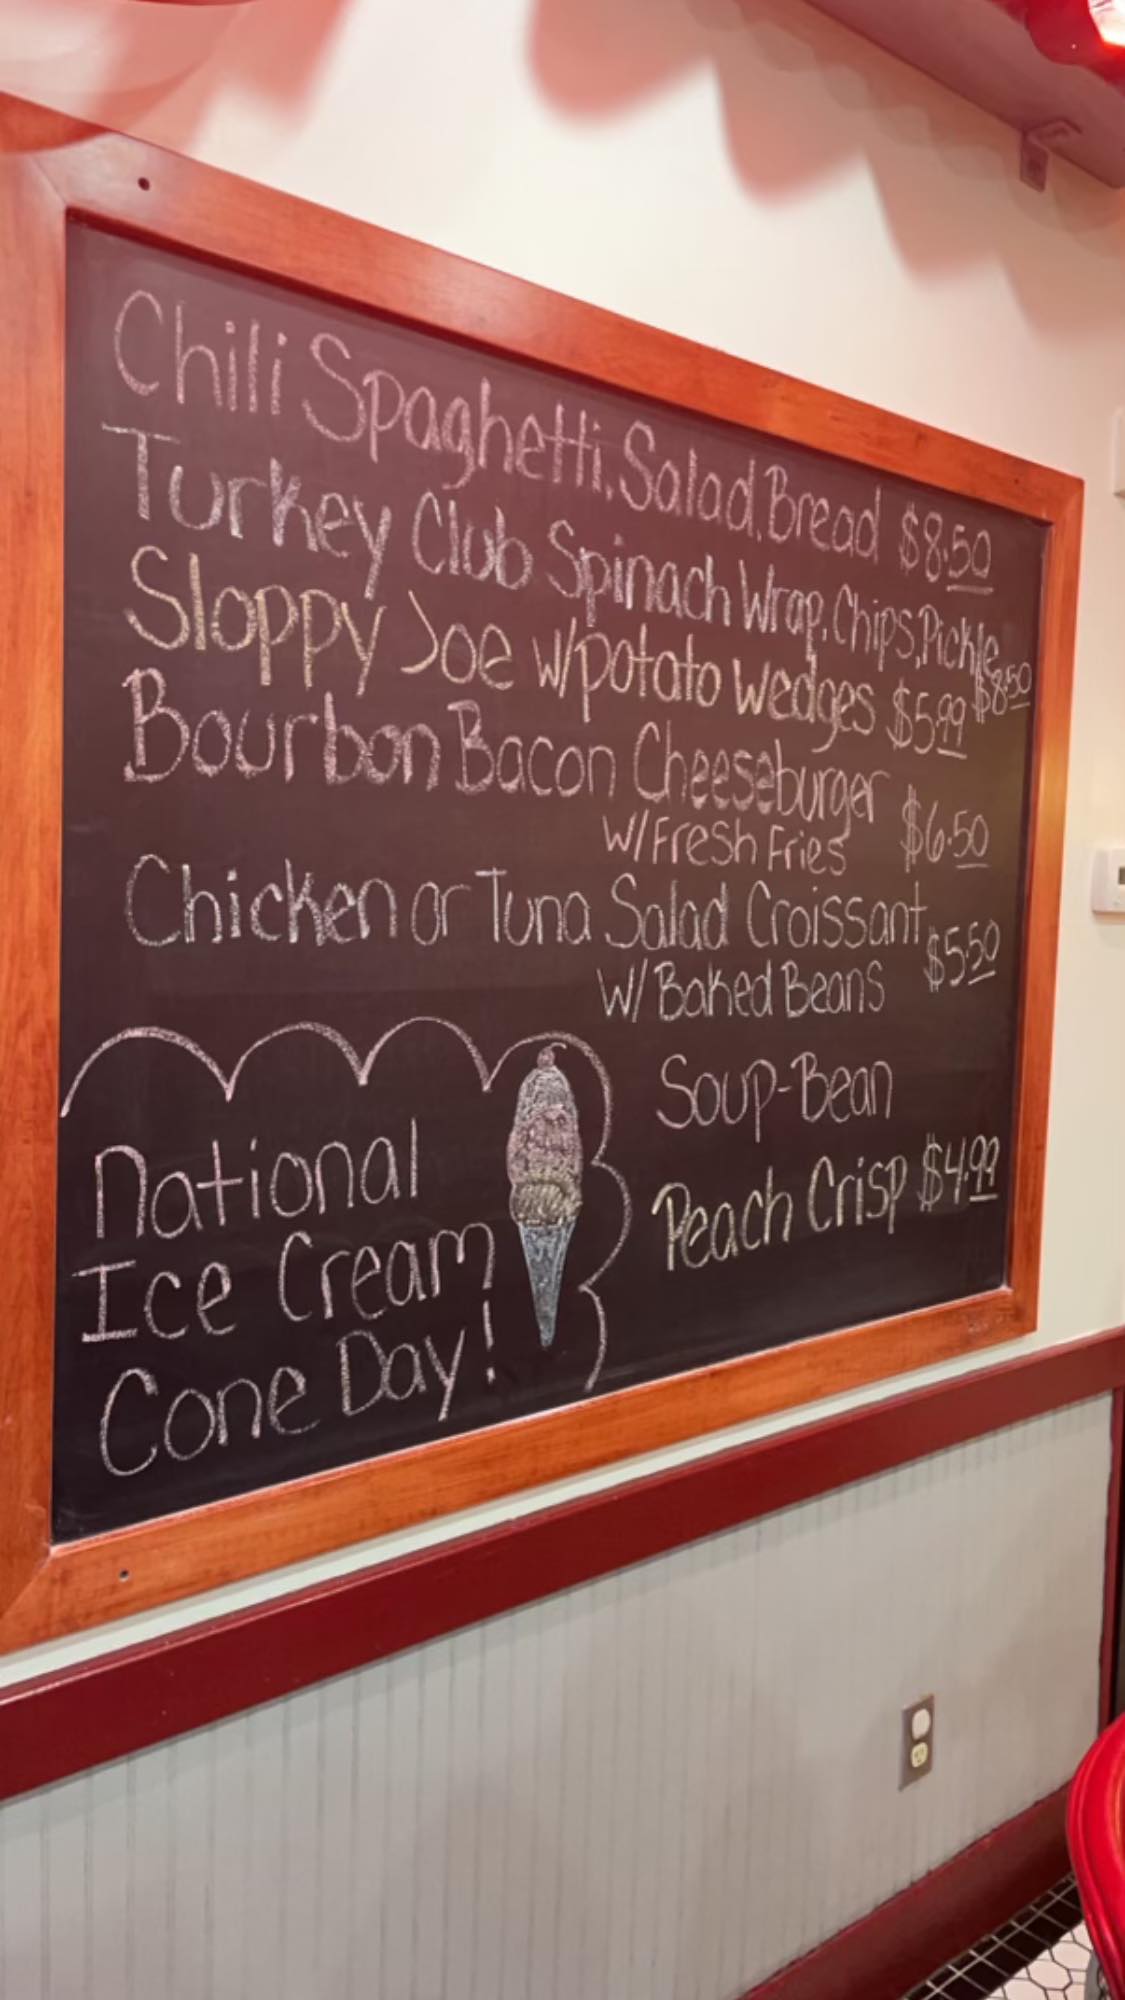 Chili Spaghetti, Salad, Bread $8.50
Turkey Club Spinach Wrap, Chips, Pickle
$8.50
Sloppy Joe w/potato wedges $5.99
Bourbon Bacon Cheeseburger
w/Fresh Fries $6.50
Chicken or Tuna Salad Croissant
w/Baked Beans $5.50
Soup-Bean
Peach Crisp $4.99
National
Ice Cream
Cone Day!